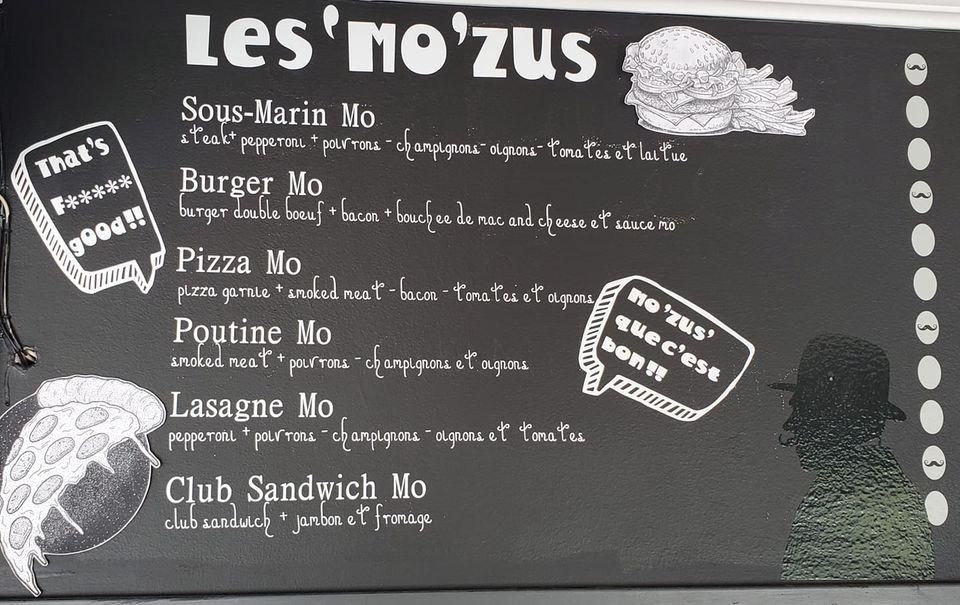 Les 'Mo'zus
Sous-Marin Mo
steak + pepperoni + poivrons - champignons - oignons - tomates et laitue
Burger Mo
burger double boeuf + bacon + bouchee de mac and cheese et sauce mo
Pizza Mo
pizza garnie + smoked meat - bacon - tomates et oignons
Poutine Mo
smoked meat + poivrons - champignons et oignons
Lasagne Mo
pepperoni + poivrons - champignons - oignons et tomates
Club Sandwich Mo
club sandwich + jambon et fromage
That's
F*****
good!!
Mo'zus'
que c'est
bon!!